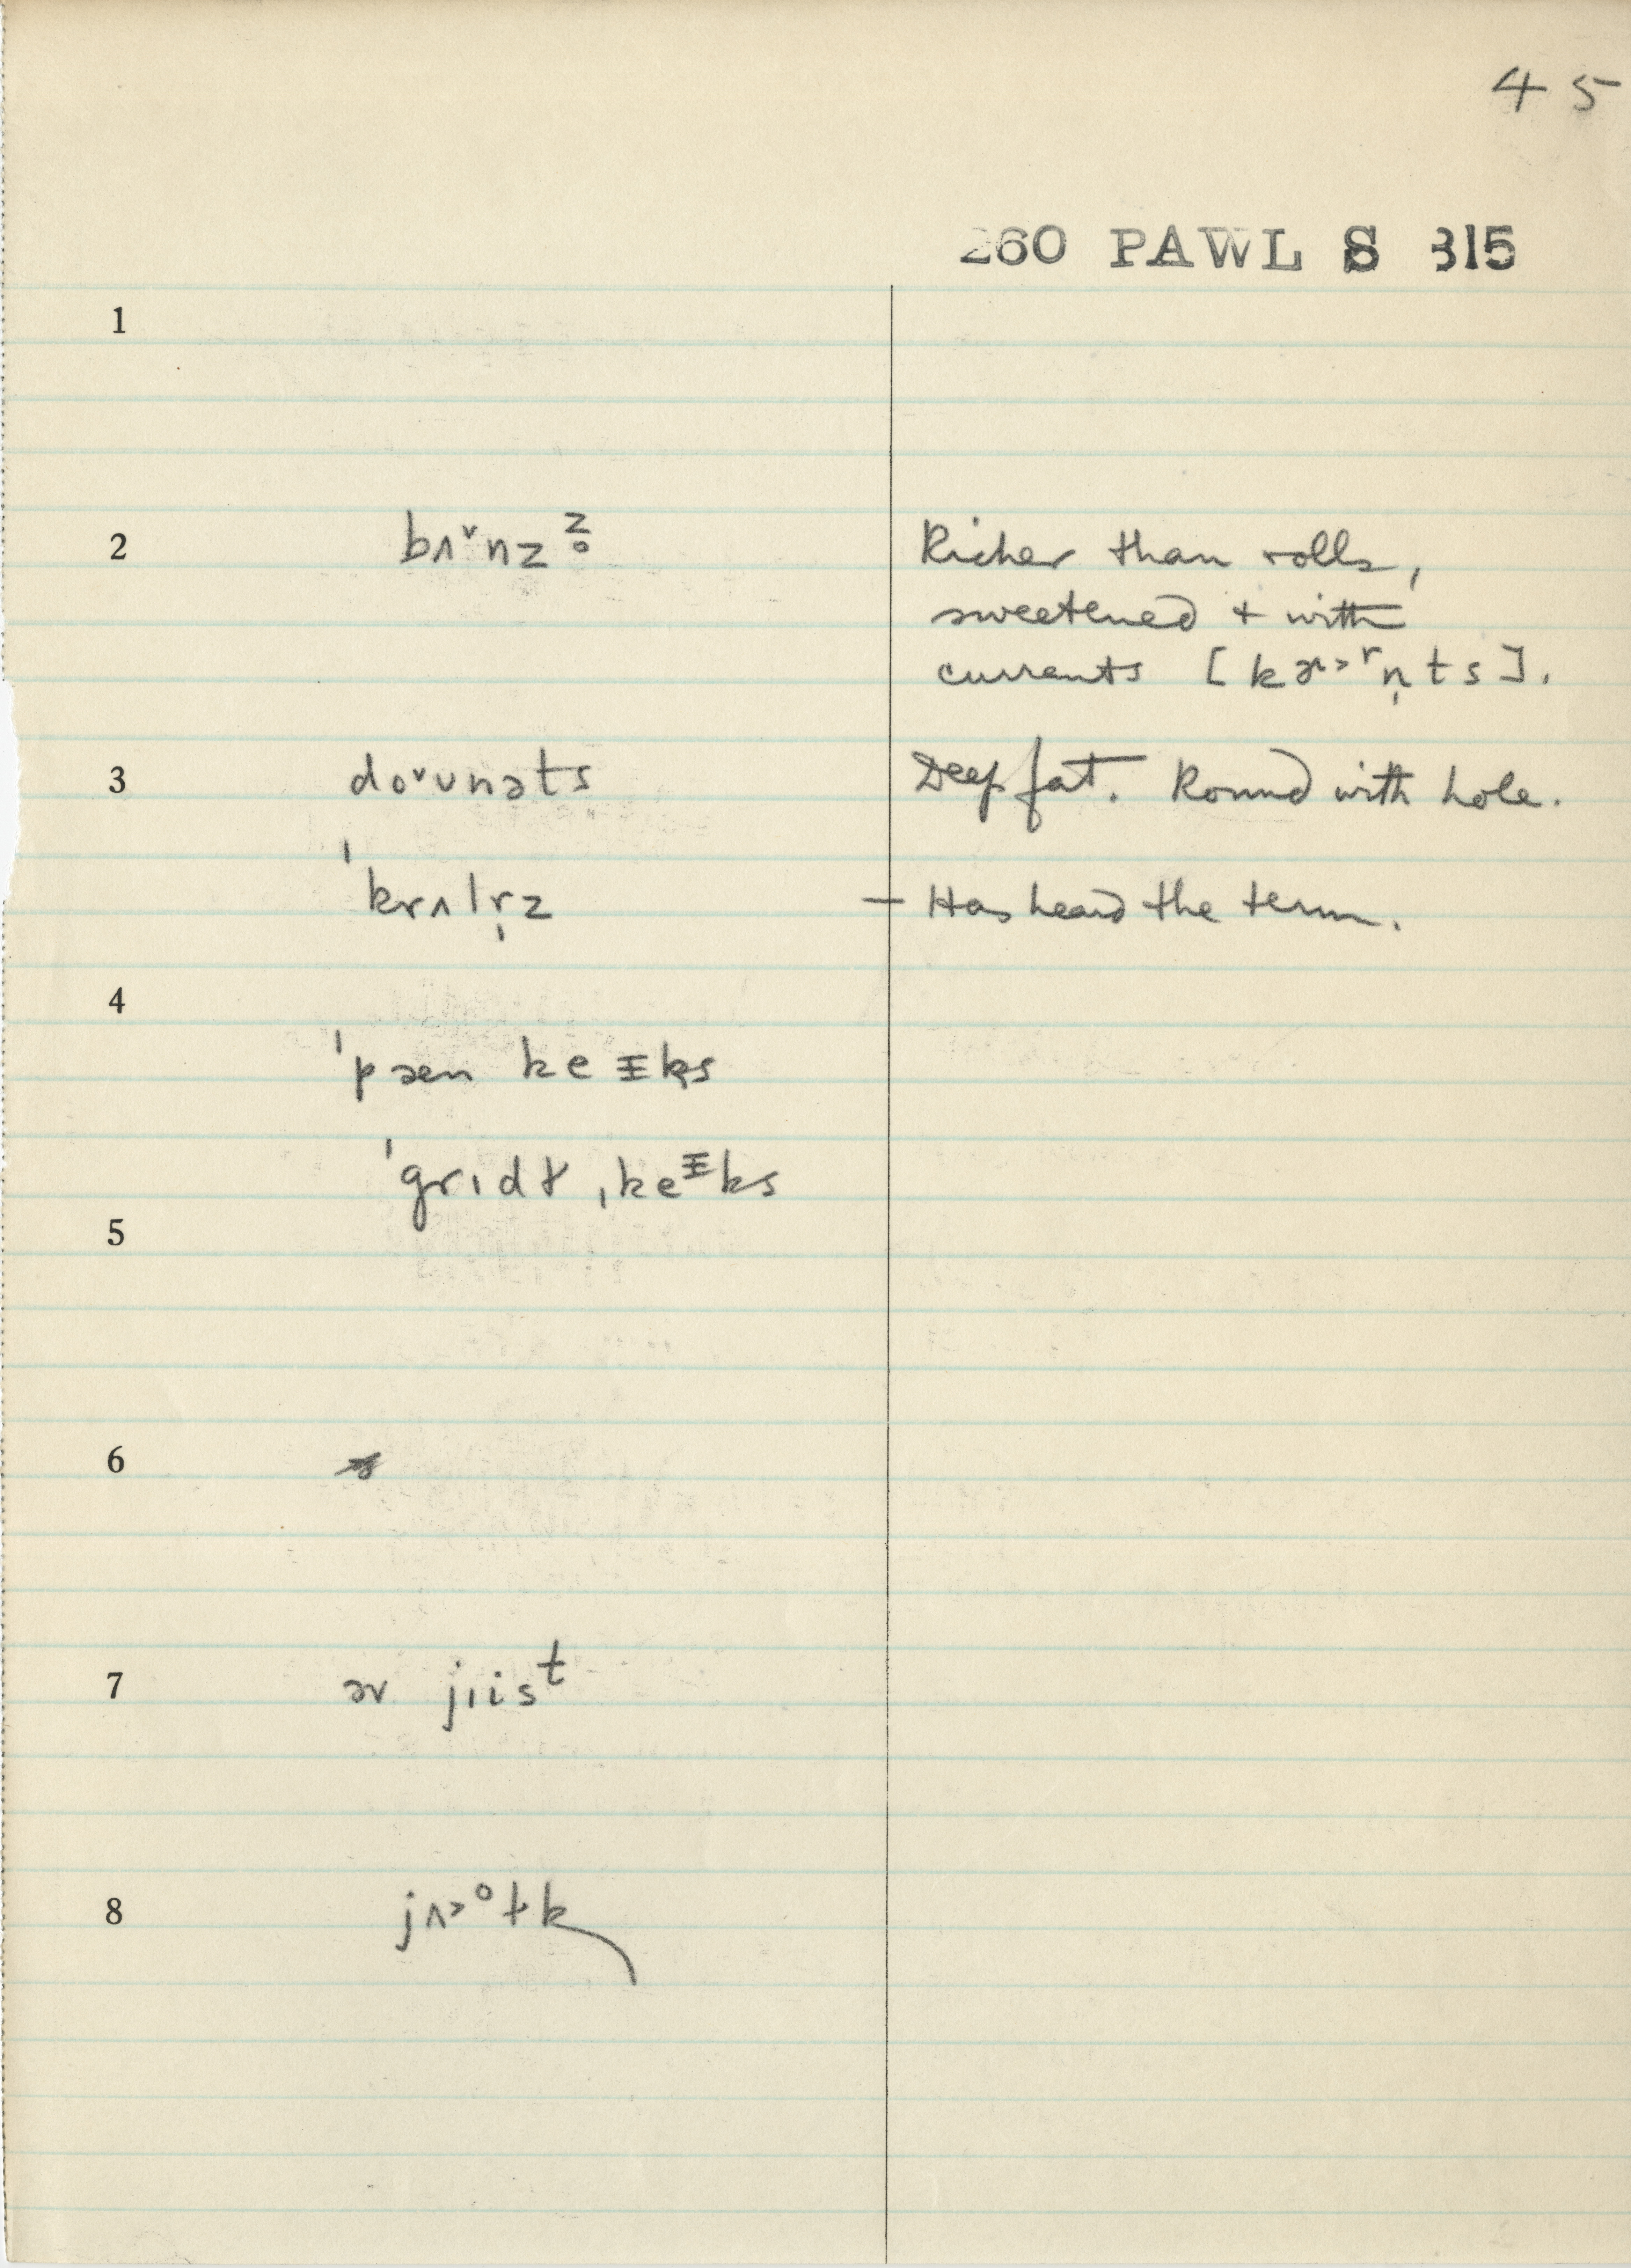 45
260 PAWL S 315
1
2 bʌ˅nz z̥ Richer than rolls,
sweetened + with
currents [kɚ˃ʳn̩ts].
3 do˅ʊnəts Deep fat. Round with hole.
ˈkrʌlr̩z – Has heard the term.
4
ˈpæn keɪks
ˈgrɪdɫ ˌkeᶦks
5
6
7 əv jɪisᵗ
8 jʌ˃ᵒɫk